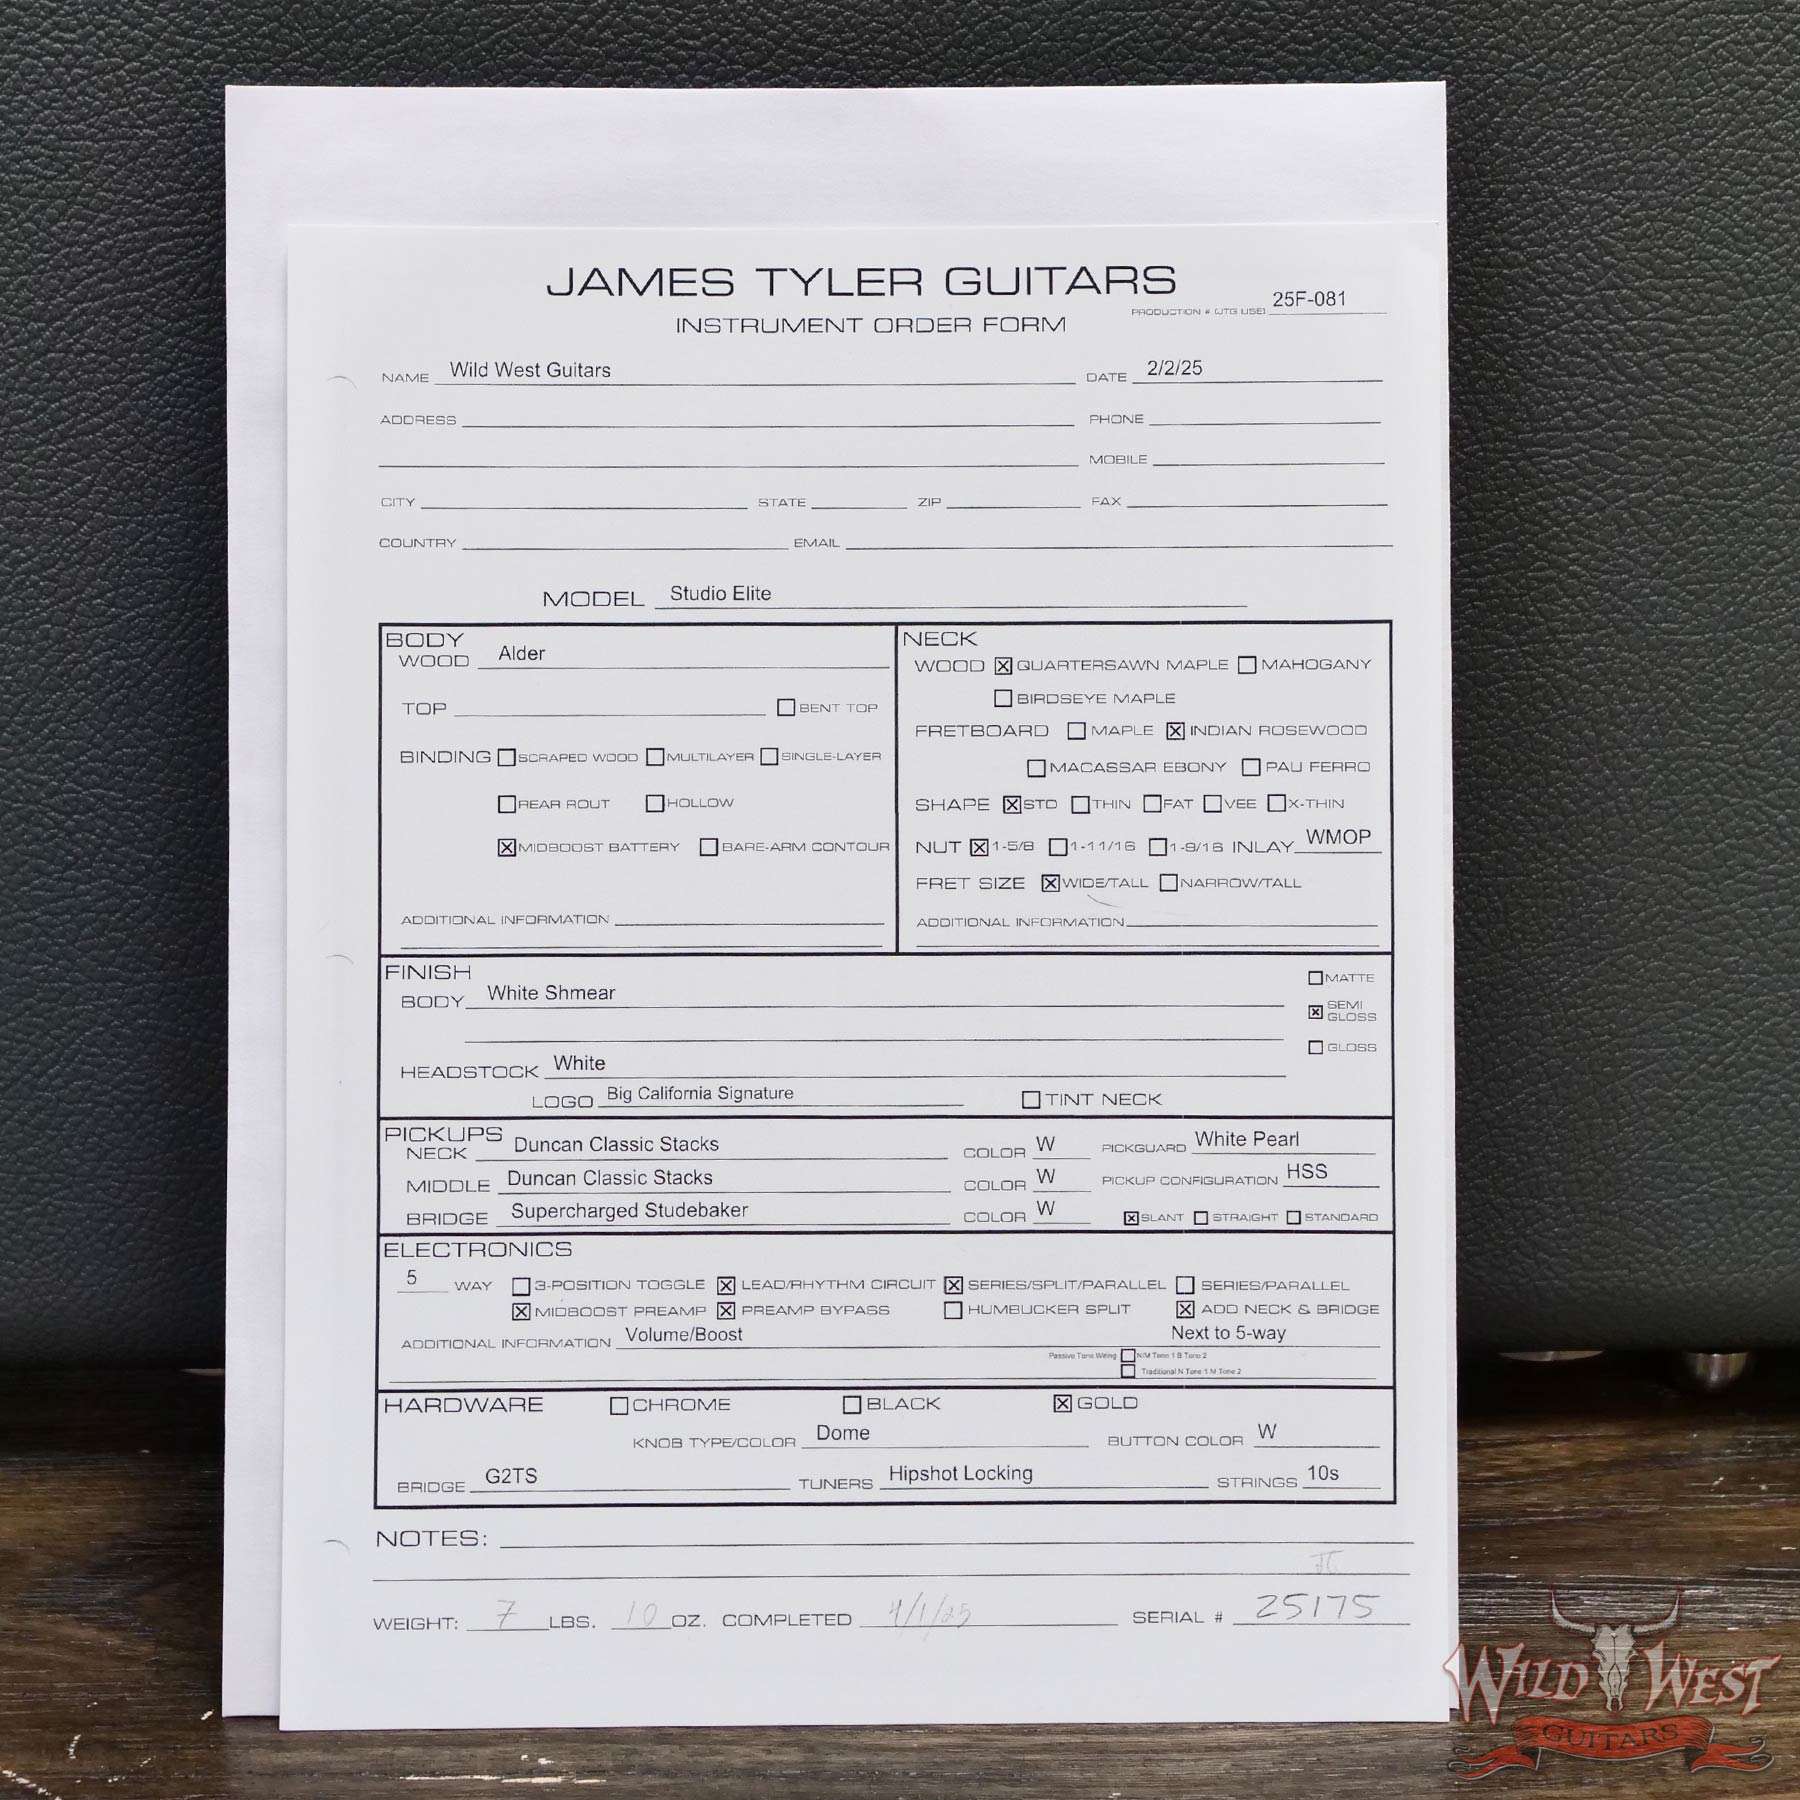 JAMES TYLER GUITARS
PRODUCTION # (JTG USE) 25F-081
INSTRUMENT ORDER FORM
NAME Wild West Guitars DATE 2/2/25
ADDRESS PHONE
MOBILE
CITY STATE ZIP FAX
COUNTRY EMAIL
MODEL Studio Elite
BODY
WOOD Alder
TOP ☐ BENT TOP
BINDING ☐ SCRAPED WOOD ☐ MULTILAYER ☐ SINGLE-LAYER
☐ REAR ROUT ☐ HOLLOW
☒ MIDBOOST BATTERY ☐ BARE-ARM CONTOUR
ADDITIONAL INFORMATION
NECK
WOOD ☒ QUARTERSAWN MAPLE ☐ MAHOGANY
☐ BIRDSEYE MAPLE
FRETBOARD ☐ MAPLE ☒ INDIAN ROSEWOOD
☐ MACASSAR EBONY ☐ PAU FERRO
SHAPE ☒ STD ☐ THIN ☐ FAT ☐ VEE ☐ X-THIN
NUT ☒ 1-5/8 ☐ 1-11/16 ☐ 1-9/16 INLAY WMOP
FRET SIZE ☒ WIDE/TALL ☐ NARROW/TALL
ADDITIONAL INFORMATION
FINISH
BODY White Shmear
☐ MATTE
☒ SEMI GLOSS
☐ GLOSS
HEADSTOCK White
LOGO Big California Signature ☐ TINT NECK
PICKUPS
NECK Duncan Classic Stacks COLOR W PICKGUARD White Pearl
MIDDLE Duncan Classic Stacks COLOR W PICKUP CONFIGURATION HSS
BRIDGE Supercharged Studebaker COLOR W ☒ SLANT ☐ STRAIGHT ☐ STANDARD
ELECTRONICS
5 WAY ☐ 3-POSITION TOGGLE ☒ LEAD/RHYTHM CIRCUIT ☒ SERIES/SPLIT/PARALLEL ☐ SERIES/PARALLEL
☒ MIDBOOST PREAMP ☒ PREAMP BYPASS ☐ HUMBUCKER SPLIT ☒ ADD NECK & BRIDGE
ADDITIONAL INFORMATION Volume/Boost Next to 5-way
Passive Tone Wiring ☐ N/M Tone 1 B Tone 2
☐ Traditional N Tone 1 M Tone 2
HARDWARE ☐ CHROME ☐ BLACK ☒ GOLD
KNOB TYPE/COLOR Dome BUTTON COLOR W
BRIDGE G2TS TUNERS Hipshot Locking STRINGS 10s
NOTES:
WEIGHT: 7 LBS. 10 OZ. COMPLETED 4/1/25 SERIAL # 25175
WILD WEST
GUITARS